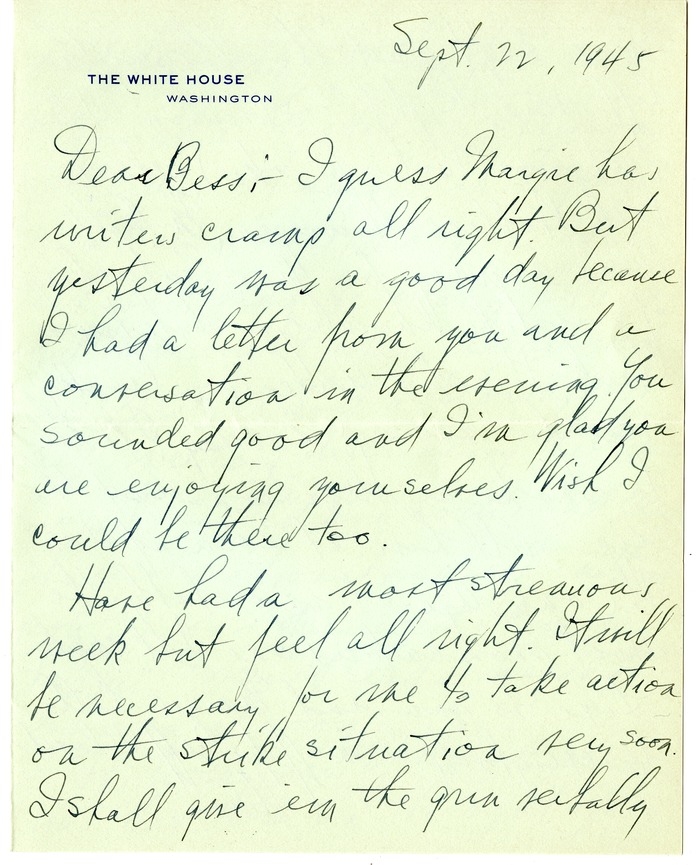 Sept. 22, 1945
THE WHITE HOUSE
WASHINGTON
Dear Bess:- I guess Margie has
writers cramp all right. But
yesterday was a good day because
I had a letter from you and a
conversation in the evening. You
sounded good and I'm glad you
are enjoying yourselves. Wish I
could be there too.
Have had a most strenuous
week but feel all right. It will
be necessary for me to take action
on the strike situation very soon.
I shall give 'em the gun verbally